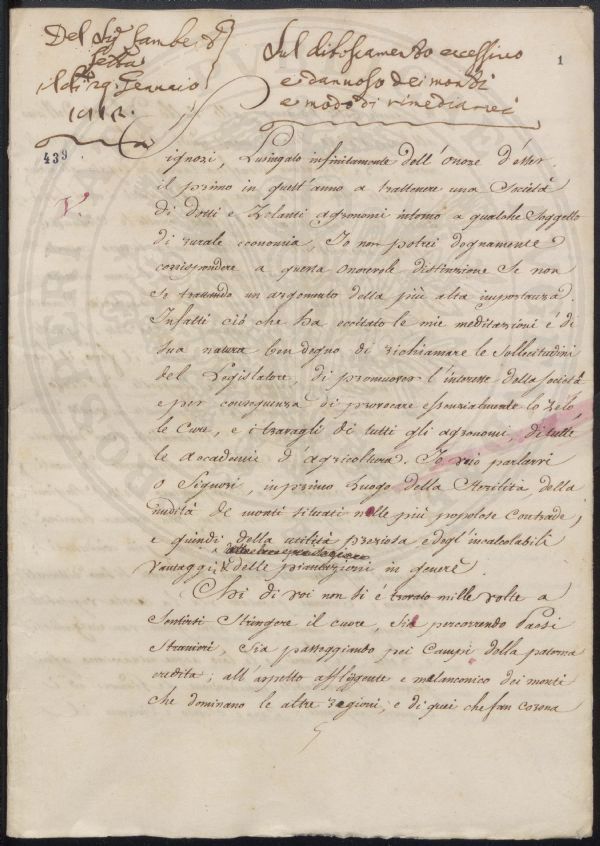 Del Sig
Sul disboscamento eccessivo
e dannoso dei monti
e modo di rimediarvi
1
il dì 29 Gennaio
439
ignori, Lusingato infinitamente dell'Onore d'esser
il primo in quest'anno a trattenere una Società
di dotti e Zelanti agronomi intorno a qualche Soggetto
di rurale economia, Io non potrei degnamente
corrispondere a questa onorevole distinzione se non
se trattando un argomento della più alta importanza.
Infatti ciò che ha eccitato le mie meditazioni è di
sua natura ben degno di richiamare le Sollecitudini
del Legislatore, di promuover l'interesse della società
e per conseguenza di provocare essenzialmente lo zelo
le Cure, e i travagli di tutti gli agronomi, di tutte
le accademie d'agricoltura. Io vuò parlarvi
o Signori, in primo luogo della Sterilità della
nudità de monti situati nelle più popolose Contrade,
e quindi della utilità preziosa e degl'incalcolabili
vantaggi delle piantazioni in genere
Chi di voi non si è trovato mille volte a
Sentirsi Stringere il cuore, Sia percorrendo Paesi
Stranieri, Sia passeggiando pei Campi della paterna
eredità; all'aspetto affliggente e melanconico dei monti
che dominano le altre regioni, e di quei che fan corona